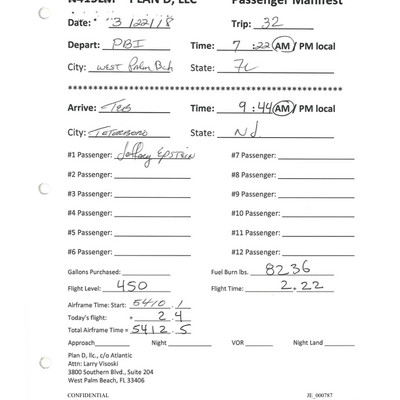 N415LM PLAN D, LLC Passenger Manifest
Date: 3/22/18 Trip: 32
Depart: PBI Time: 7:22 AM / PM local
City: WEST Palm Bch State: FL
Arrive: TEB Time: 9:44 AM / PM local
City: TETERBORO State: NJ
#1 Passenger: Jeffrey EPSTEIN #7 Passenger:
#2 Passenger: #8 Passenger:
#3 Passenger: #9 Passenger:
#4 Passenger: #10 Passenger:
#5 Passenger: #11 Passenger:
#6 Passenger: #12 Passenger:
Gallons Purchased: Fuel Burn lbs. 8236
Flight Level: 450 Flight Time: 2.22
Airframe Time: Start: 5410.1
Today's flight: + 2.4
Total Airframe Time = 5412.5
Approach Night VOR Night Land
Plan D, llc., c/o Atlantic
Attn: Larry Visoski
3800 Southern Blvd., Suite 204
West Palm Beach, FL 33406
CONFIDENTIAL JE_000787